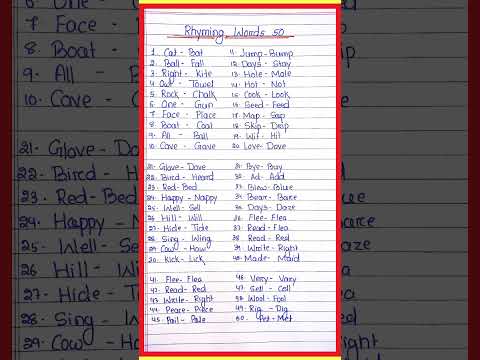 Rhyming Words 50
1. Cat - Bat
2. Ball - Fall
3. Right - Kite
4. Owl - Towel
5. Rock - Chalk
6. One - Gun
7. Face - Place
8. Boat - Coat
9. All - Ball
10. Cave - Gave
11. Jump - Bump
12. Days - Stay
13. Hole - Mole
14. Hot - Not
15. Cook - Look
16. Seed - Feed
17. Map - Sap
18. Skip - Drip
19. Wit - Hit
20. Love - Dove
21. Glove - Dove
22. Bird - Heard
23. Red - Bed
24. Happy - Nappy
25. Well - Sell
26. Hill - Will
27. Hide - Tide
28. Sing - Wing
29. Cow - How
30. Kick - Lick
31. Bye - Buy
32. Ad - Add
33. Blew - Blue
34. Bear - Bare
35. Days - Daze
36. Flee - Flea
37. Read - Flea
38. Read - Red
39. Write - Right
40. Made - Maid
41. Flee - Flea
42. Read - Red
43. Write - Right
44. Peace - Piece
45. Pail - Pale
46. Very - Vary
47. Sell - Cell
48. Wool - Fool
49. Rig - Dig
50. Pet - Met